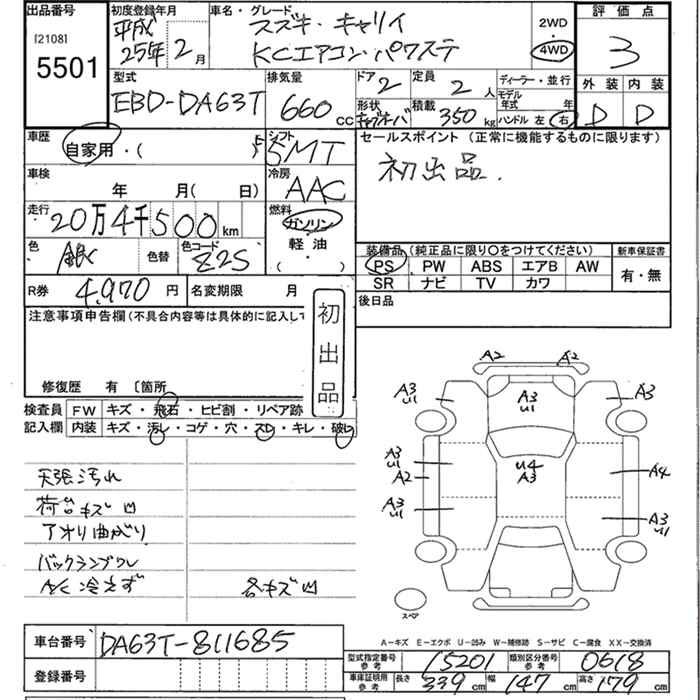 出品番号
[2108]
5501
初度登録年月
平成
25年 2月
車名・グレード
スズキ・キャリイ
KCエアコン・パワステ
2WD
・
4WD
評価点
3
外装 内装
D D
型式
EBD-DA63T
排気量
660 CC
ドア 2
形状
定員 2 人
積載 350 kg
ディーラー・並行
モデル
年式 年
ハンドル 左・右
車歴
自家用・( )
シフト
5MT
セールスポイント (正常に機能するものに限ります)
初出品.
車検
年 月( 日)
冷房
AAC
走行
20万4千500km
燃料
ガソリン
・
軽油
・
( )
色
銀
色替
色コード
Z2S
装備品(純正品に限り○をつけてください)
新車保証書
PS PW ABS エアB AW
SR ナビ TV カワ
有・無
R券 4,970 円
名変期限 月
後日品
注意事項申告欄(不具合内容等は具体的に記入して
初出品
修復歴 有 〔箇所
検査員
記入欄
FW キズ・飛石・ヒビ割・リペア跡
内装 キズ・汚レ・コゲ・穴・スレ・キレ・破レ
天張汚れ
荷台キズ凹
アオリ曲がり
バックランプワレ
A/C 冷えず
各キズ凹
A2 A2
A3 U1
A3 U1
A3
A3 U1
A2
U4
A3
A4
A3 U1
A3 U1
スペア
A-キズ E-エクボ U-凹み W-補修跡 S-サビ C-腐食 XX-交換済
車台番号 DA63T-811685
登録番号
型式指定番号
参考
15201
類別区分番号
参考
0618
車庫証明用
参考
長さ 339 cm 幅 147 cm 高さ 179 cm